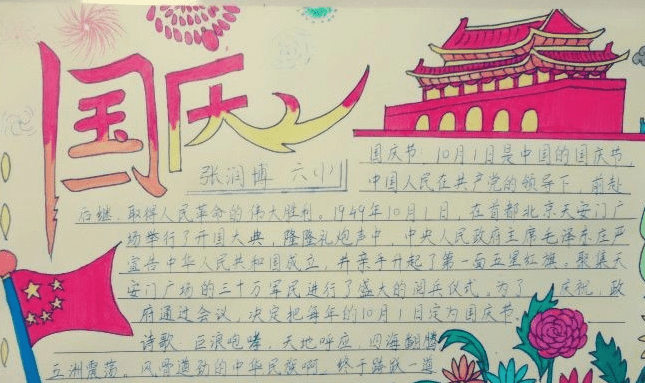 国庆
张润博 六(八)
国庆节:10月1日是中国的国庆节,
中国人民在共产党的领导下,前赴
后继,取得人民革命的伟大胜利。1949年10月1日,在首都北京天安门广
场举行了开国大典,隆隆礼炮声中,中央人民政府主席毛泽东庄严
宣告中华人民共和国成立,并亲手升起了第一面五星红旗。聚集天
安门广场的三十万军民进行了盛大的阅兵仪式。为了 庆祝,政
府通过会议,决定把每年的10月1日定为国庆节。
诗歌 巨浪咆哮,天地呼应,四海翻腾
五洲震荡。风骨遒劲的中华民族啊,终于踏跃一道